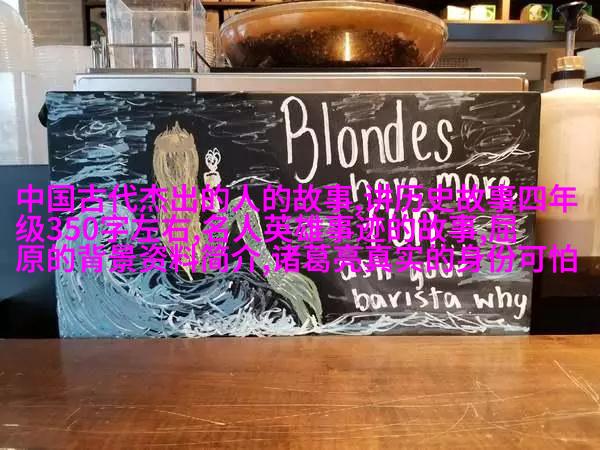 Blondes
have more
中国古代杰出的人的故事,讲历史故事四年
级350字左右,名人英雄事迹的故事,屈
原的背景资料简介,诸葛亮真实的身份可怕
barista why